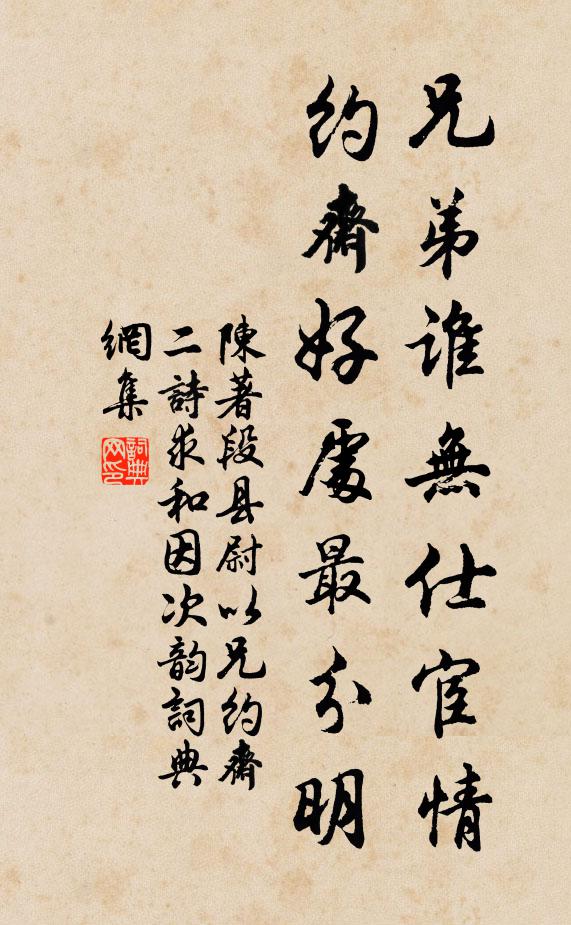 兄弟誰無仕宦情
約齋好處最分明
陳著段县尉以兄約齋
二詩求和因次韵詞典
網集
詞典
网印